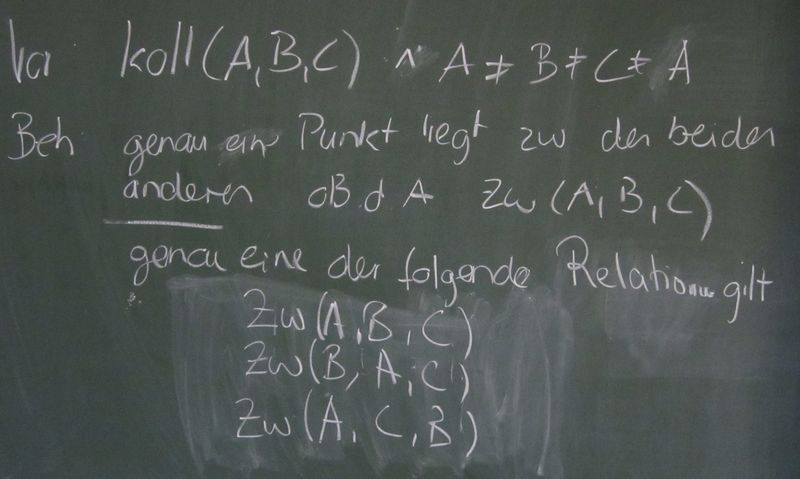 Vor koll(A,B,C) ∧ A ≠ B ≠ C ≠ A
Beh genau ein Punkt liegt zw den beiden
anderen oB.d A Zw (A, B, C)
genau eine der folgende Relationen gilt
Zw(A,B,C)
Zw(B,A,C)
Zw(A,C,B)